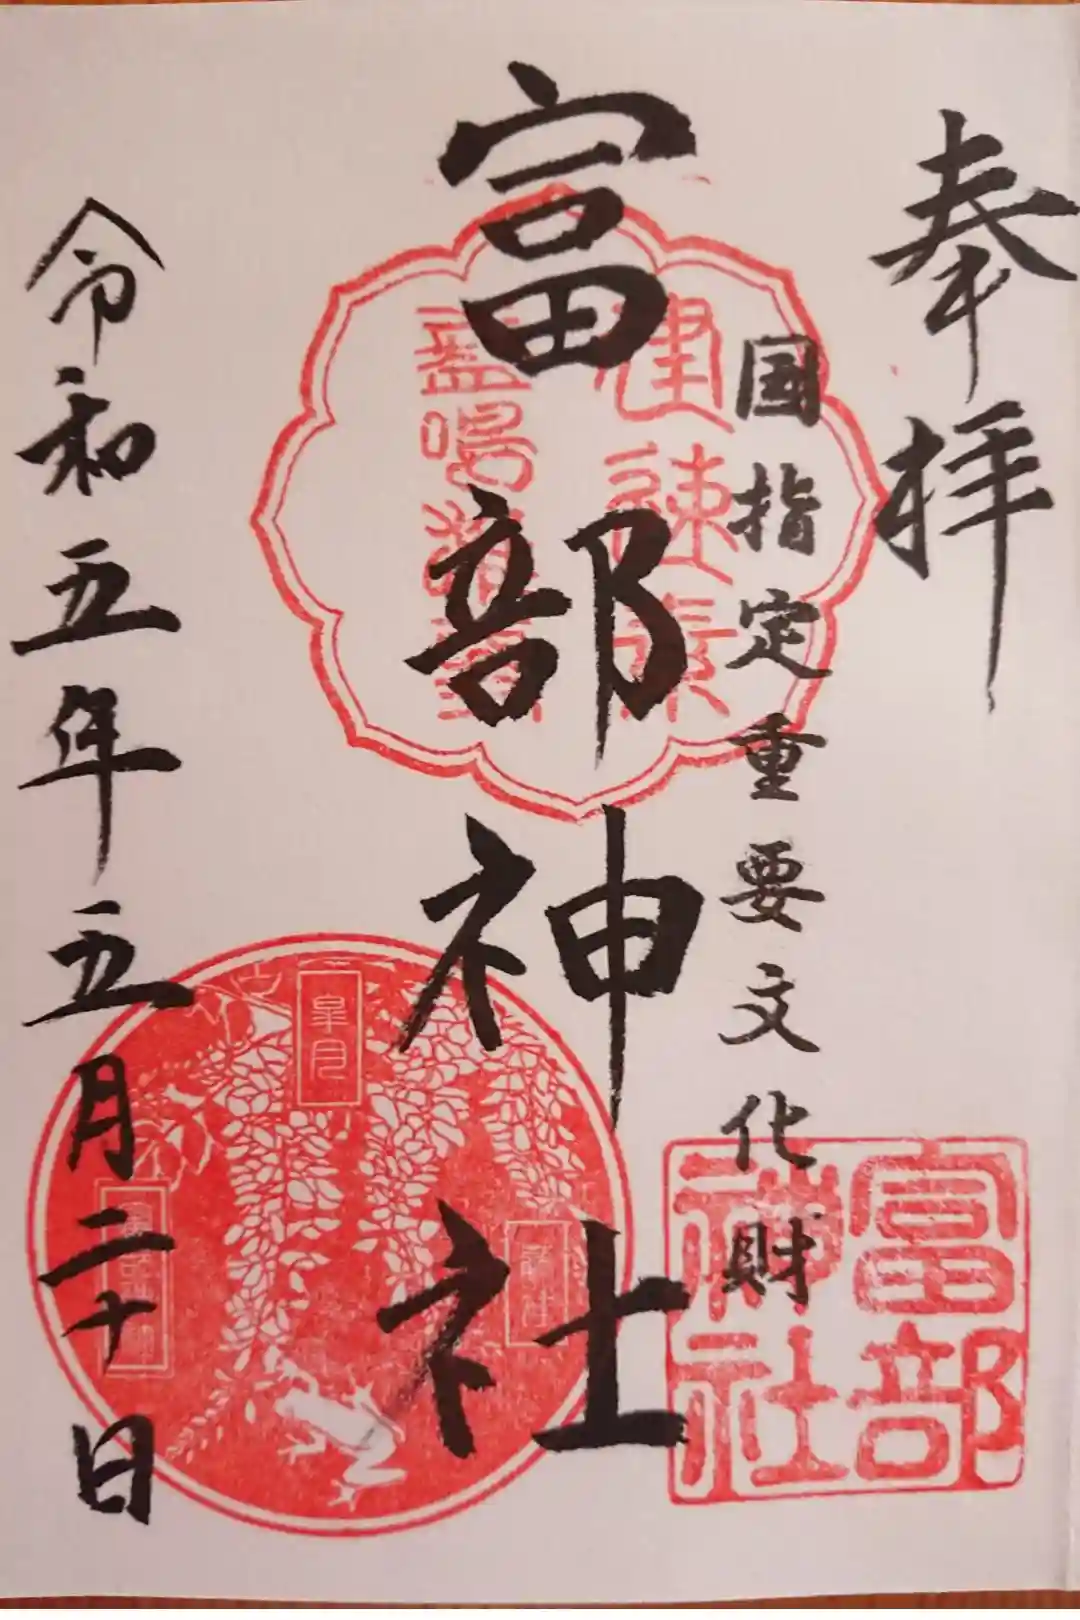 奉拝
国指定重要文化財
富部神社
令和五年五月二十日
建速素
盞嗚尊
皐月
富部
神社